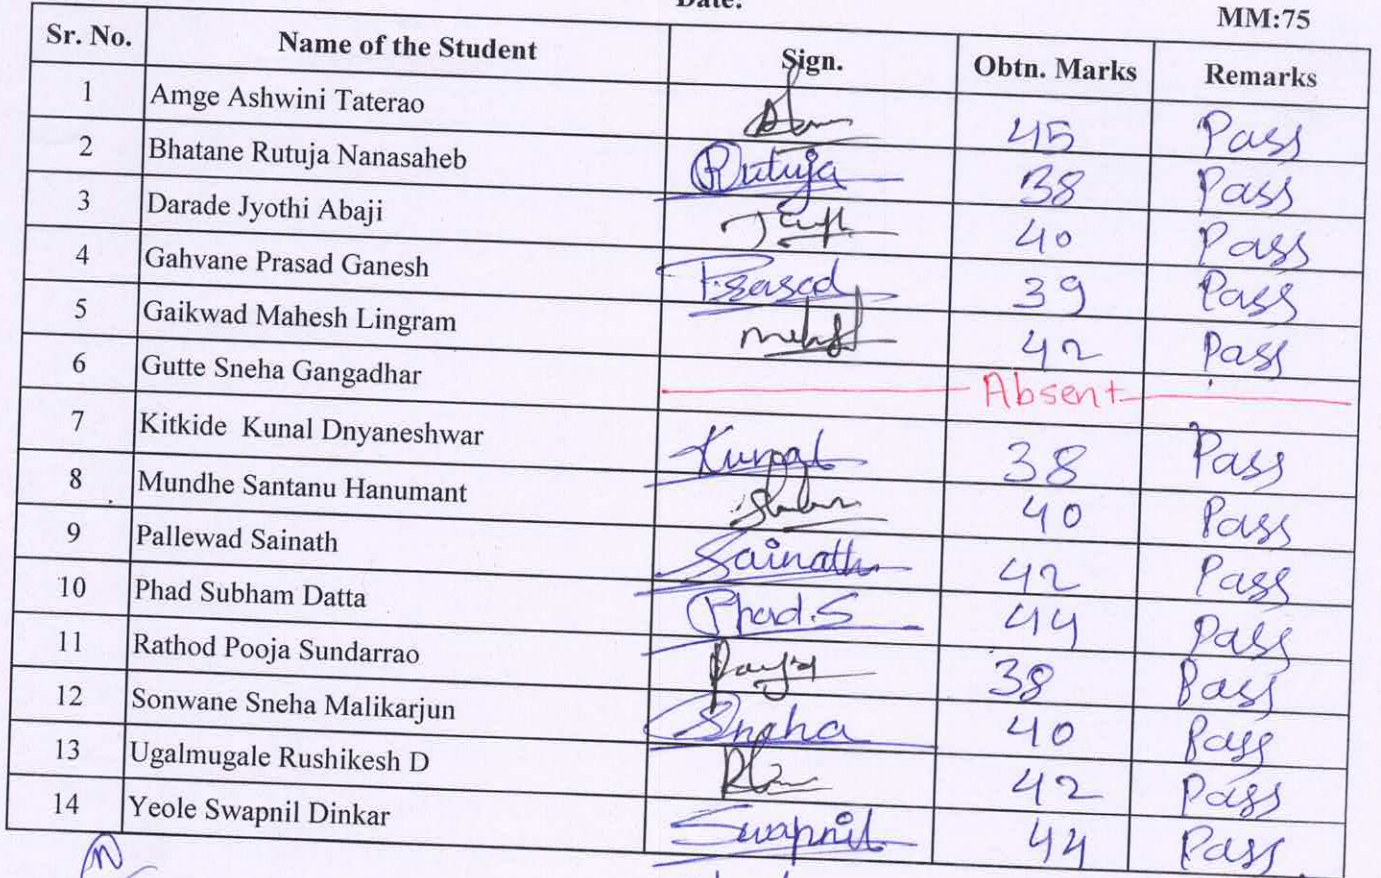 Date:
MM:75
Sr. No. Name of the Student Sign. Obtn. Marks Remarks
1 Amge Ashwini Taterao 45 Pass
2 Bhatane Rutuja Nanasaheb Rutuja 38 Pass
3 Darade Jyothi Abaji 40 Pass
4 Gahvane Prasad Ganesh Prasad 39 Pass
5 Gaikwad Mahesh Lingram 42 Pass
6 Gutte Sneha Gangadhar Absent
7 Kitkide Kunal Dnyaneshwar Kunal 38 Pass
8 Mundhe Santanu Hanumant 40 Pass
9 Pallewad Sainath Sainath 42 Pass
10 Phad Subham Datta Phad.S 44 Pass
11 Rathod Pooja Sundarrao 38 Pass
12 Sonwane Sneha Malikarjun Sneha 40 Pass
13 Ugalmugale Rushikesh D 42 Pass
14 Yeole Swapnil Dinkar Swapnil 44 Pass